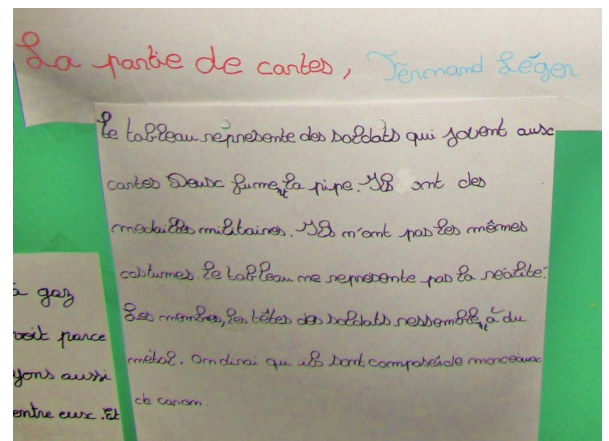 La partie de cartes, Fernand Léger
Le tableau représente des soldats qui jouent aux
cartes Deux fument la pipe. Ils ont des
medailles militaires. Ils n'ont pas les mêmes
costumes. Le tableau ne represente pas la réalité.
Les membres, les têtes des soldats ressemblent à du
métal. On dirai qu'ils sont composés de morceaux
de canon
à gaz
voit parce
yons aussi
entre eux. Et